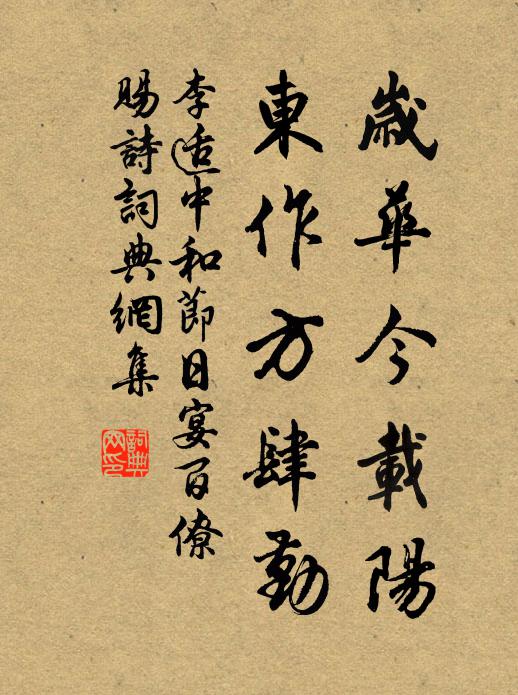 歲華今載陽
東作方肆勤
李适中和節日宴百僚
賜詩詞典網集
詞典
网印